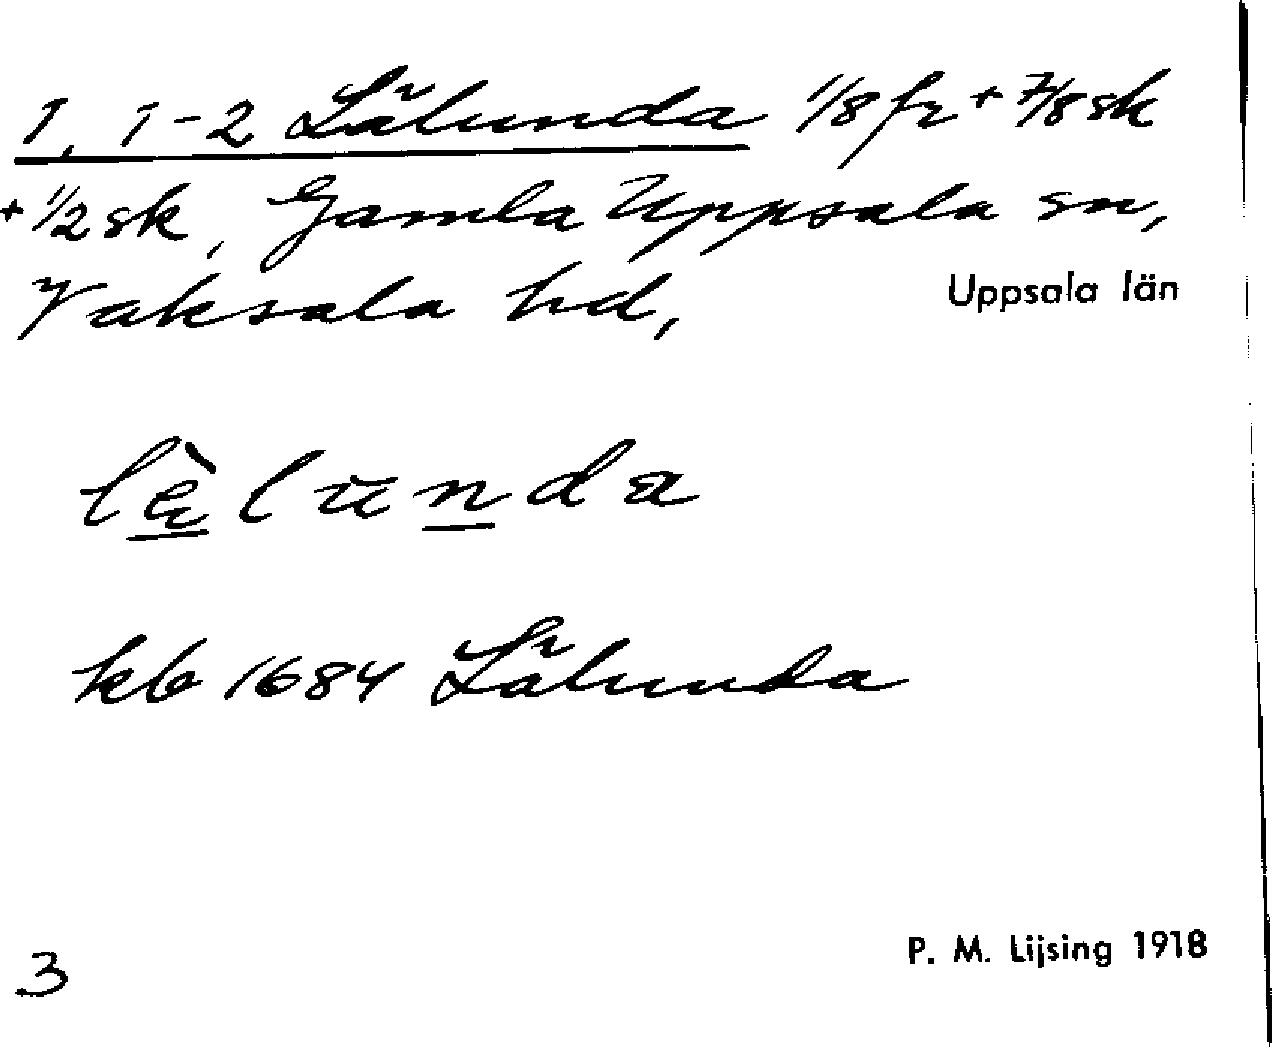 1, 1-2 Lälunda 1/8 fr + 7/8 sk
+ 1/2 sk, Gamla Uppsala sn,
Vaksala hd, Uppsala län
lὲlunda
kb 1684 Lälunda
3
P. M. Lijsing 1918